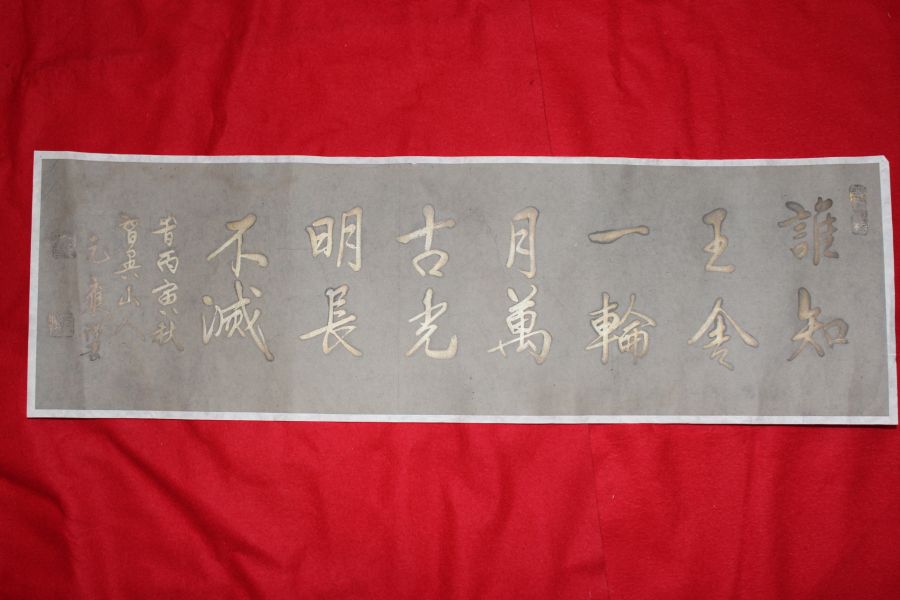 誰知
王舍
一輪
月萬
古光
明長
不滅
昔丙寅秋
智異山人
元應書